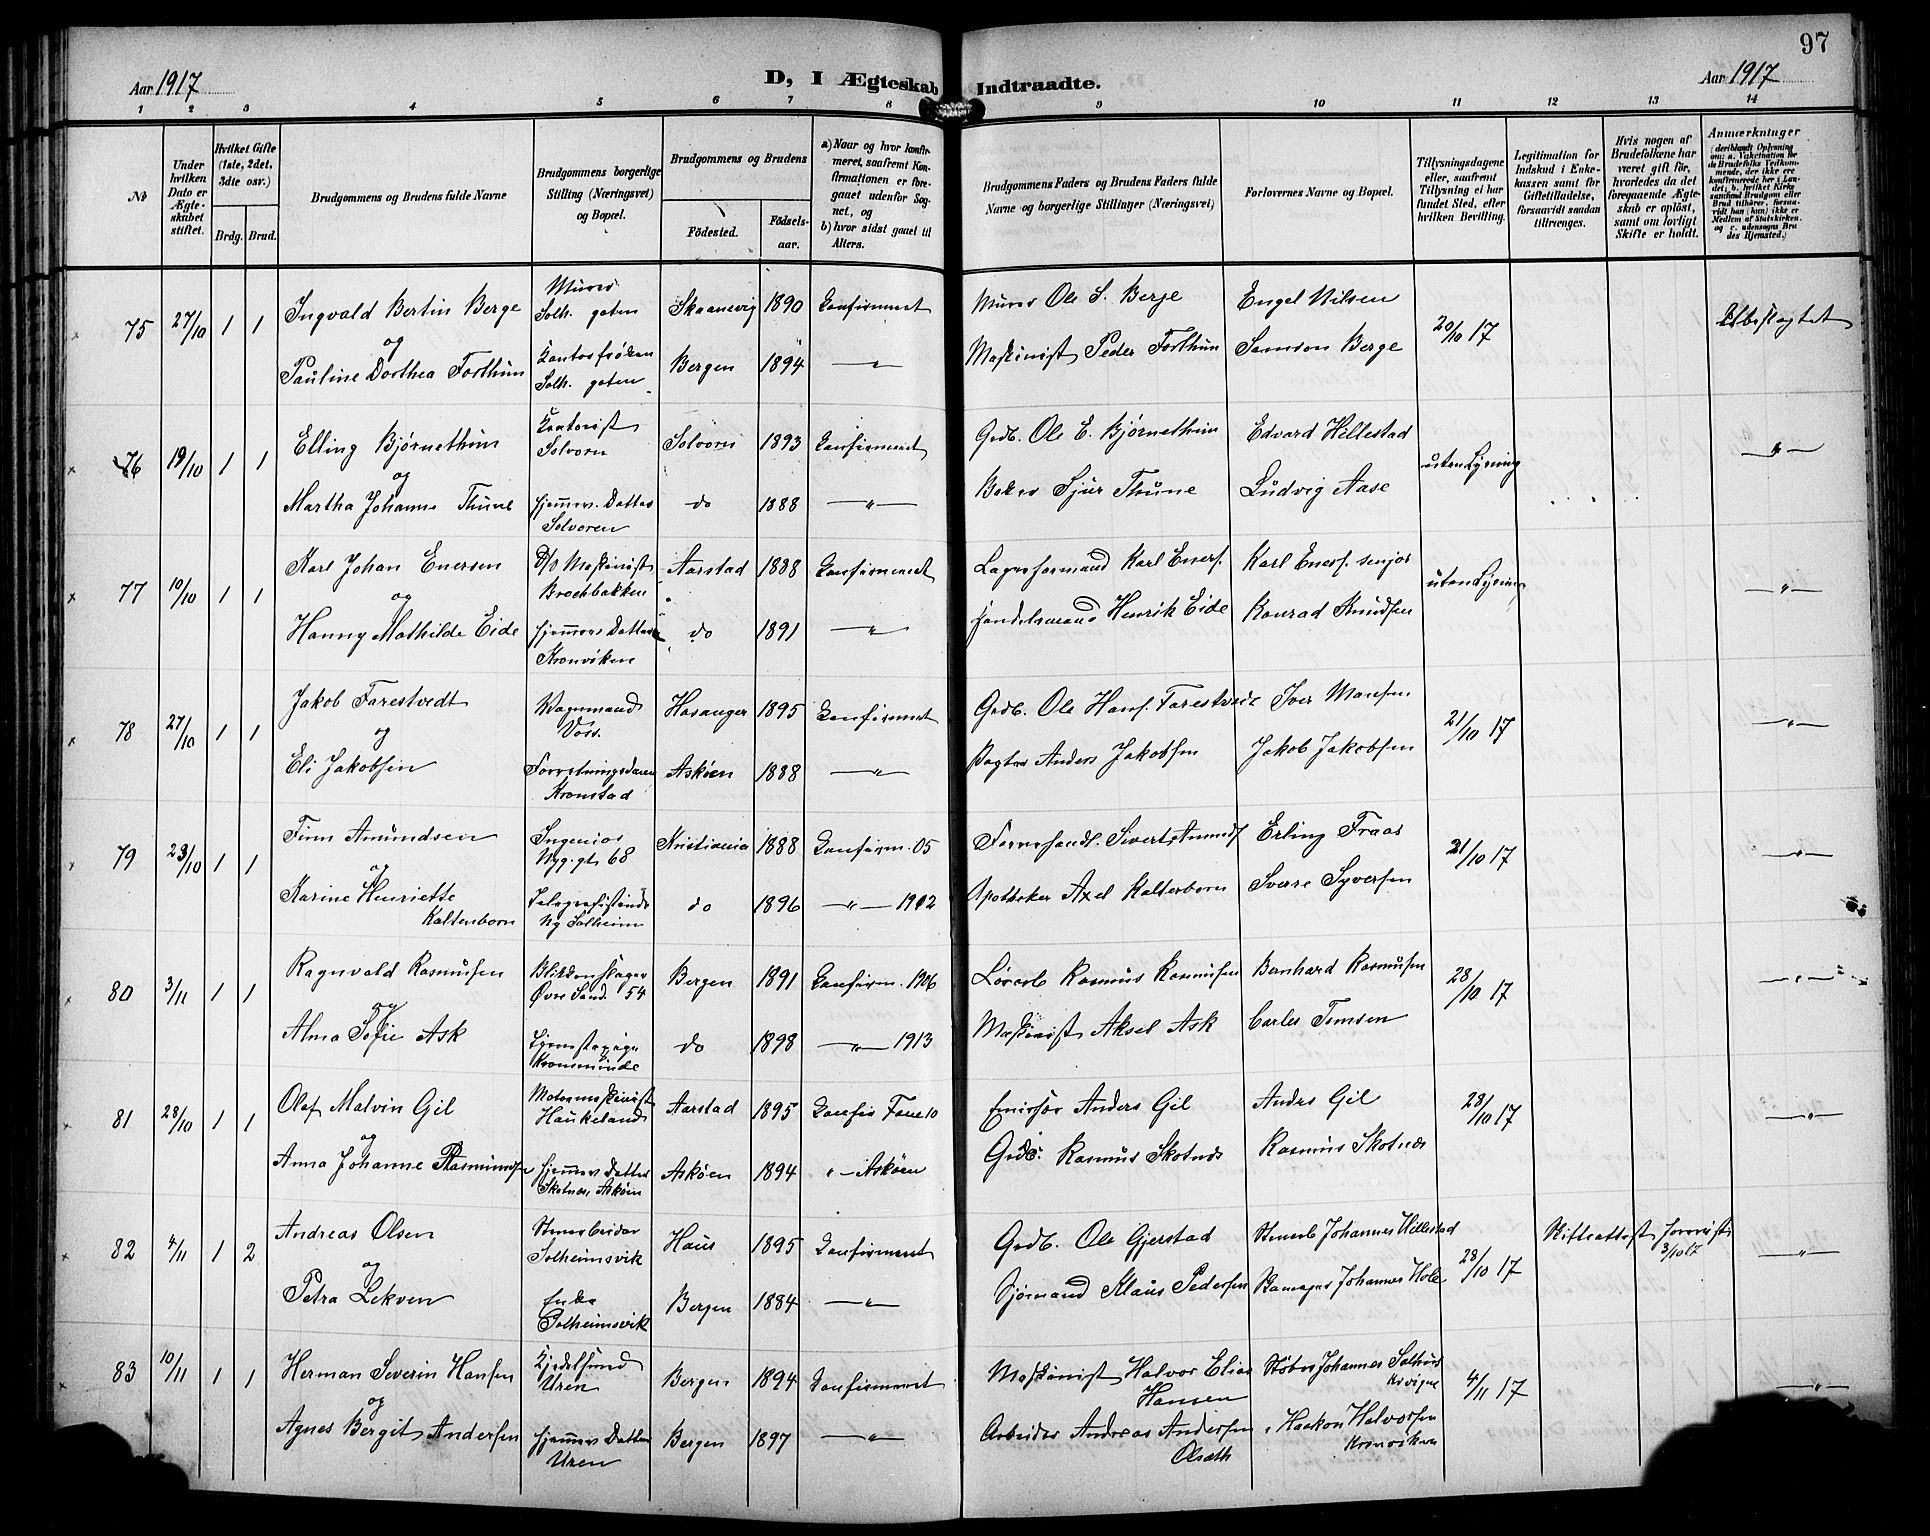 97
Aar 1917
D, I Ægteskab Indtraadte.
Aar 1917
1 2 3 4 5 6 7 8 9 10 11 12 13 14
No
Under hvilken Dato er Ægteskabet stiftet.
Hvilket Gifte (1ste, 2det, 3die osv.)
Brdg. Brud.
Brudgommens og Brudens fulde Navne
Brudgommens borgerlige Stilling (Næringsvei) og Bopæl.
Brudgommens og Brudens
Fødested. Fødselsaar.
a) Naar og hvor konfirmeret, saafremt Konfirmationen er foregaaet udenfor Sognet, og
b) hvor sidst gaaet til Alters.
Brudgommens Faders og Brudens Faders fulde Navne og borgerlige Stillinger (Næringsvei)
Forlovernes Navne og Bopæl.
Tillysningsdagene eller, saafremt Tillysning ei har fundet Sted, efter hvilken Bevilling.
Legitimation for Indskud i Enkekassen samt for Giftetilladelse, forsaavidt saadan tiltrænges.
Hvis nogen af Brudefolkene har været gift før, hvorledes da det foregaaende Ægteskab er opløst, samt om lovligt Skifte er holdt.
Anmærkninger
75 27/10 1 1 Ingvald Bertin Berge Murer Solh. gaten Skaanevig 1890 Konfirmeret Murer Ole S. Berge Engel Nilsen 20/10 17 Ubeslægtet
og
Pauline Dorthea Forthun Kontorfrøken Solh. gaten Bergen 1894 —"— Maskinist Peder Forthun Samson Berge
76 19/10 1 1 Elling Bjørnethun Kontorist Solvorn Solvorn 1893 Konfirmeret Grdb. Ole E. Bjørnethun Edvard Hillestad uten Lysning —"—
og
Martha Johanne Thune Hjemmev. Datter Solvoren do 1888 —"— Sjur Thune Ludvig Aase
77 10/10 1 1 Karl Johan Enersen Maskinist Brochbakken Aarstad 1888 Konfirmeret Lagerformand Karl Eners. Karl Eners. senjor uten Lysning —"—
og
Hanny Mathilde Eide Hjemmev. Datter Kronviken do 1891 —"— Handelsmand Henrik Eide Konrad Knudsen
78 27/10 1 1 Jakob Farestvedt Vognmand Voss. Hosanger 1895 Konfirmeret Grdb. Ole Hans. Farestvedt Iver Monsen 21/10 17 —"—
og
Eli Jakobsen Forretningsdame Kronstad Askøen 1888 —"— Anders Jakobsen Jakob Jakobsen
79 23/10 1 1 Finn Amundsen Ingeniør Nyg.gt. 68 Kristiania 1888 Konfirm. 05 Sivert Amunds Erling Fraas 21/10 17 —"—
og
Karine Henriette Kaltenborn Telegrafistinde Ny Solheim do 1896 —"— 1912 Apotheker Axel Kaltenborn Sverre Syversen
80 3/11 1 1 Ragnvald Rasmusen Blikkenslager Øvre Sand. 54 Bergen 1891 Konfirm. 1906 Rasmus Rasmusen Bernhard Rasmusen 28/10 17 —"—
og
Alma Sofie Ask Kronsminde do 1898 —"— 1913 Maskinist Aksel Ask Carles Tomsen
81 28/10 1 1 Olaf Malvin Gil Motormaskinist Haukeland Aarstad 1895 Konfir Fane 10 Anders Gil Andrs Gil 28/10 17 —"—
og
Anna Johanne Rasmundsen Hjemmev. Datter Skotnes, Askøen Askøen 1894 "— Askøen Grdb. Rasmus Skotnes Rasmus Skotnes
82 4/11 1 2 Andreas Olsen Stenarbeider Solheimsvik Haus 1895 Konfirmeret Grdb. Ole Gjerstad Stenarb Johannes Hillestad 28/10 17 Skifteattest forevist 3/10 17 —"—
og
Petra Lekven Enke Solheimsvik Bergen 1884 —"— Sjømand Klaus Pedersen Johannes Hole
83 10/11 1 1 Herman Severin Hansen Kjedelsmed Uren Bergen 1894 Konfirmeret Maskinist Halvor Elias Hansen Støber Johannes Solhus 4/11 17 —"—
og
Agnes Bergit Andersen Hjemmev Datter Uren Bergen 1897 —"— Arbeider Andreas Andersen Haakon Halvorsen Kronviken